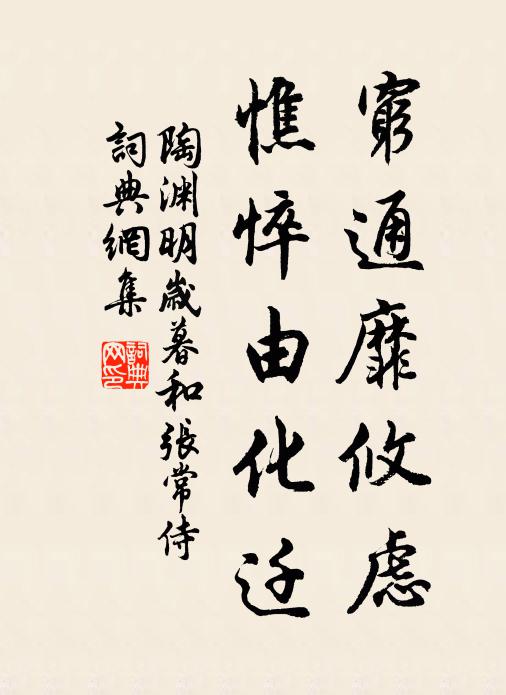 窮通靡攸慮
憔悴由化迁
陶渊明歲暮和張常侍
詞典網集
詞典
网印